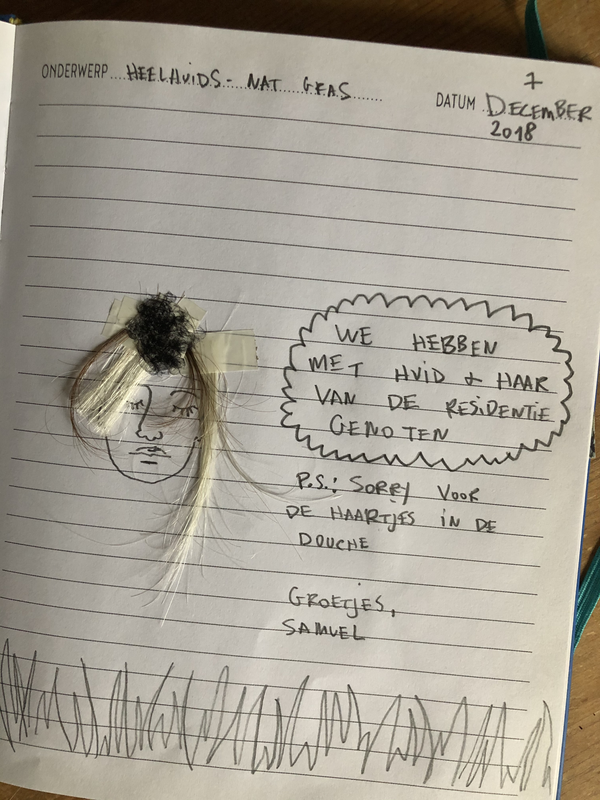 ONDERWERP HEELHUIDS - NAT GEAS
DATUM 7 DECEMBER
2018
WE HEBBEN
MET HUID & HAAR
VAN DE RESIDENTIE
GENOTEN
P.S.: SORRY VOOR
DE HAARTJES IN DE
DOUCHE
GROETJES,
SAMUEL